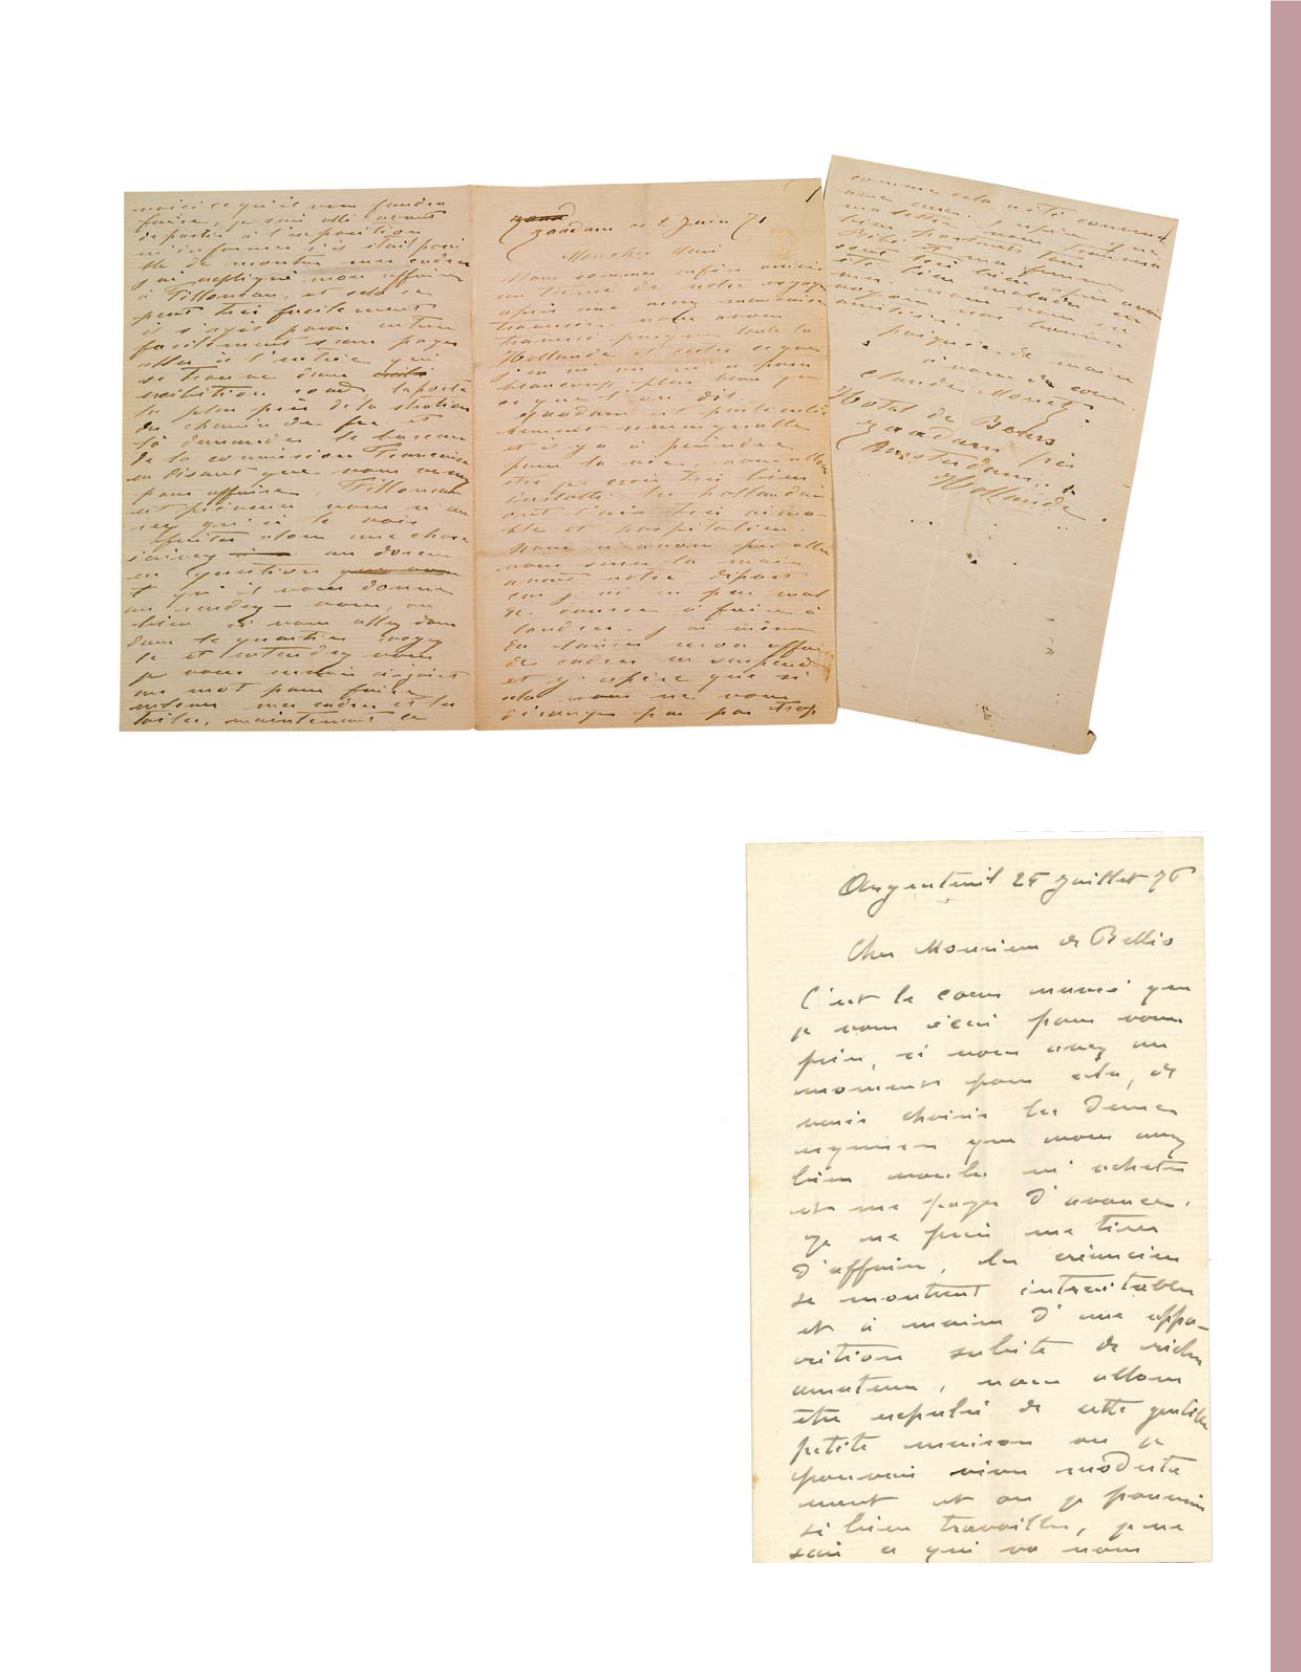 zaandam
zaandam ce 2 Juin 71
Mon cher Ami
Nous sommes enfin arrivés
au terme de notre voyage
après une assez mauvaise
traversée. nous avons
traversé presque toute la
Hollande et certes ce que
j'en ai vu m'a paru
beaucoup plus beau que
ce que l'on dit.
Zaandam est particuliè
rement remarquable
et il y a à peindre
pour la vie. nous allons
être je crois très bien
installés les hollandais
ont l'air très aima-
ble et hospitaliers.
Nous n'avons pu aller
vous serrer la main
avant notre départ
car j'ai eu pas mal
de courses à faire à
Londres. j'ai même
du laisser mon affaire
de cadres en suspend
et j'espère que si
cela vous ne vous
dérange pas par trop
voici ce qu'il vous faudra
faire, je suis allé avant
de partir à l'exposition
m'informer s'il était possi
ble de montrer mes cadres
j'ai expliqué mon affaire
à Tillonneau, et cela se
peut très facilement
il s'agit pour entrer
facilement sans payer
aller à l'entrée qui
se trouve dans
exibition road, la porte
la plus près de la station
du chemin de fer et
là demander le bureau
de la commission Française
en disant que vous venez
pour affaires, Tillonneau
est prévenu vous n'au
rez qu'à le voir
faites alors une chose
écrivez au doreur
en question
qu'il vous donne
un rendez-vous, ou
bien si vous allez dans
dans le quartier voyez
le et entendez vous
je vous envoie ci joint
un mot pour faire
enlever mes cadres et les
toiles, maintenant ce
comme cela a été convenu
ma lettre vous trouvera
bien portants tous
Bébé et ma femme
sont très bien après avoir
été bien malades en
mer. nous nous en
voyons nos bonnes
amitiés.
poignée de main
à vous de cœur.
Claude Monet
Hotel de Beurs
zaandam près
Amsterdam.
Hollande
Argenteuil 25 Juillet 76
Cher Monsieur de Bellio
C'est le cœur navré que
je vous écris pour vous
prier, si vous avez un
moment pour cela, de
venir choisir les deux
esquisses que vous avez
bien voulu m'acheter
et me payer d'avance.
Je ne puis me tirer
d'affaire, les créanciers
se montrent intraitables
et à moins d'une appa-
rition subite de riches
amateurs, nous allons
être expulsés de cette gentille
petite maison ou je
pouvais vivre modeste
ment et ou je pouvais
si bien travailler, je ne
sais ce qui va nous